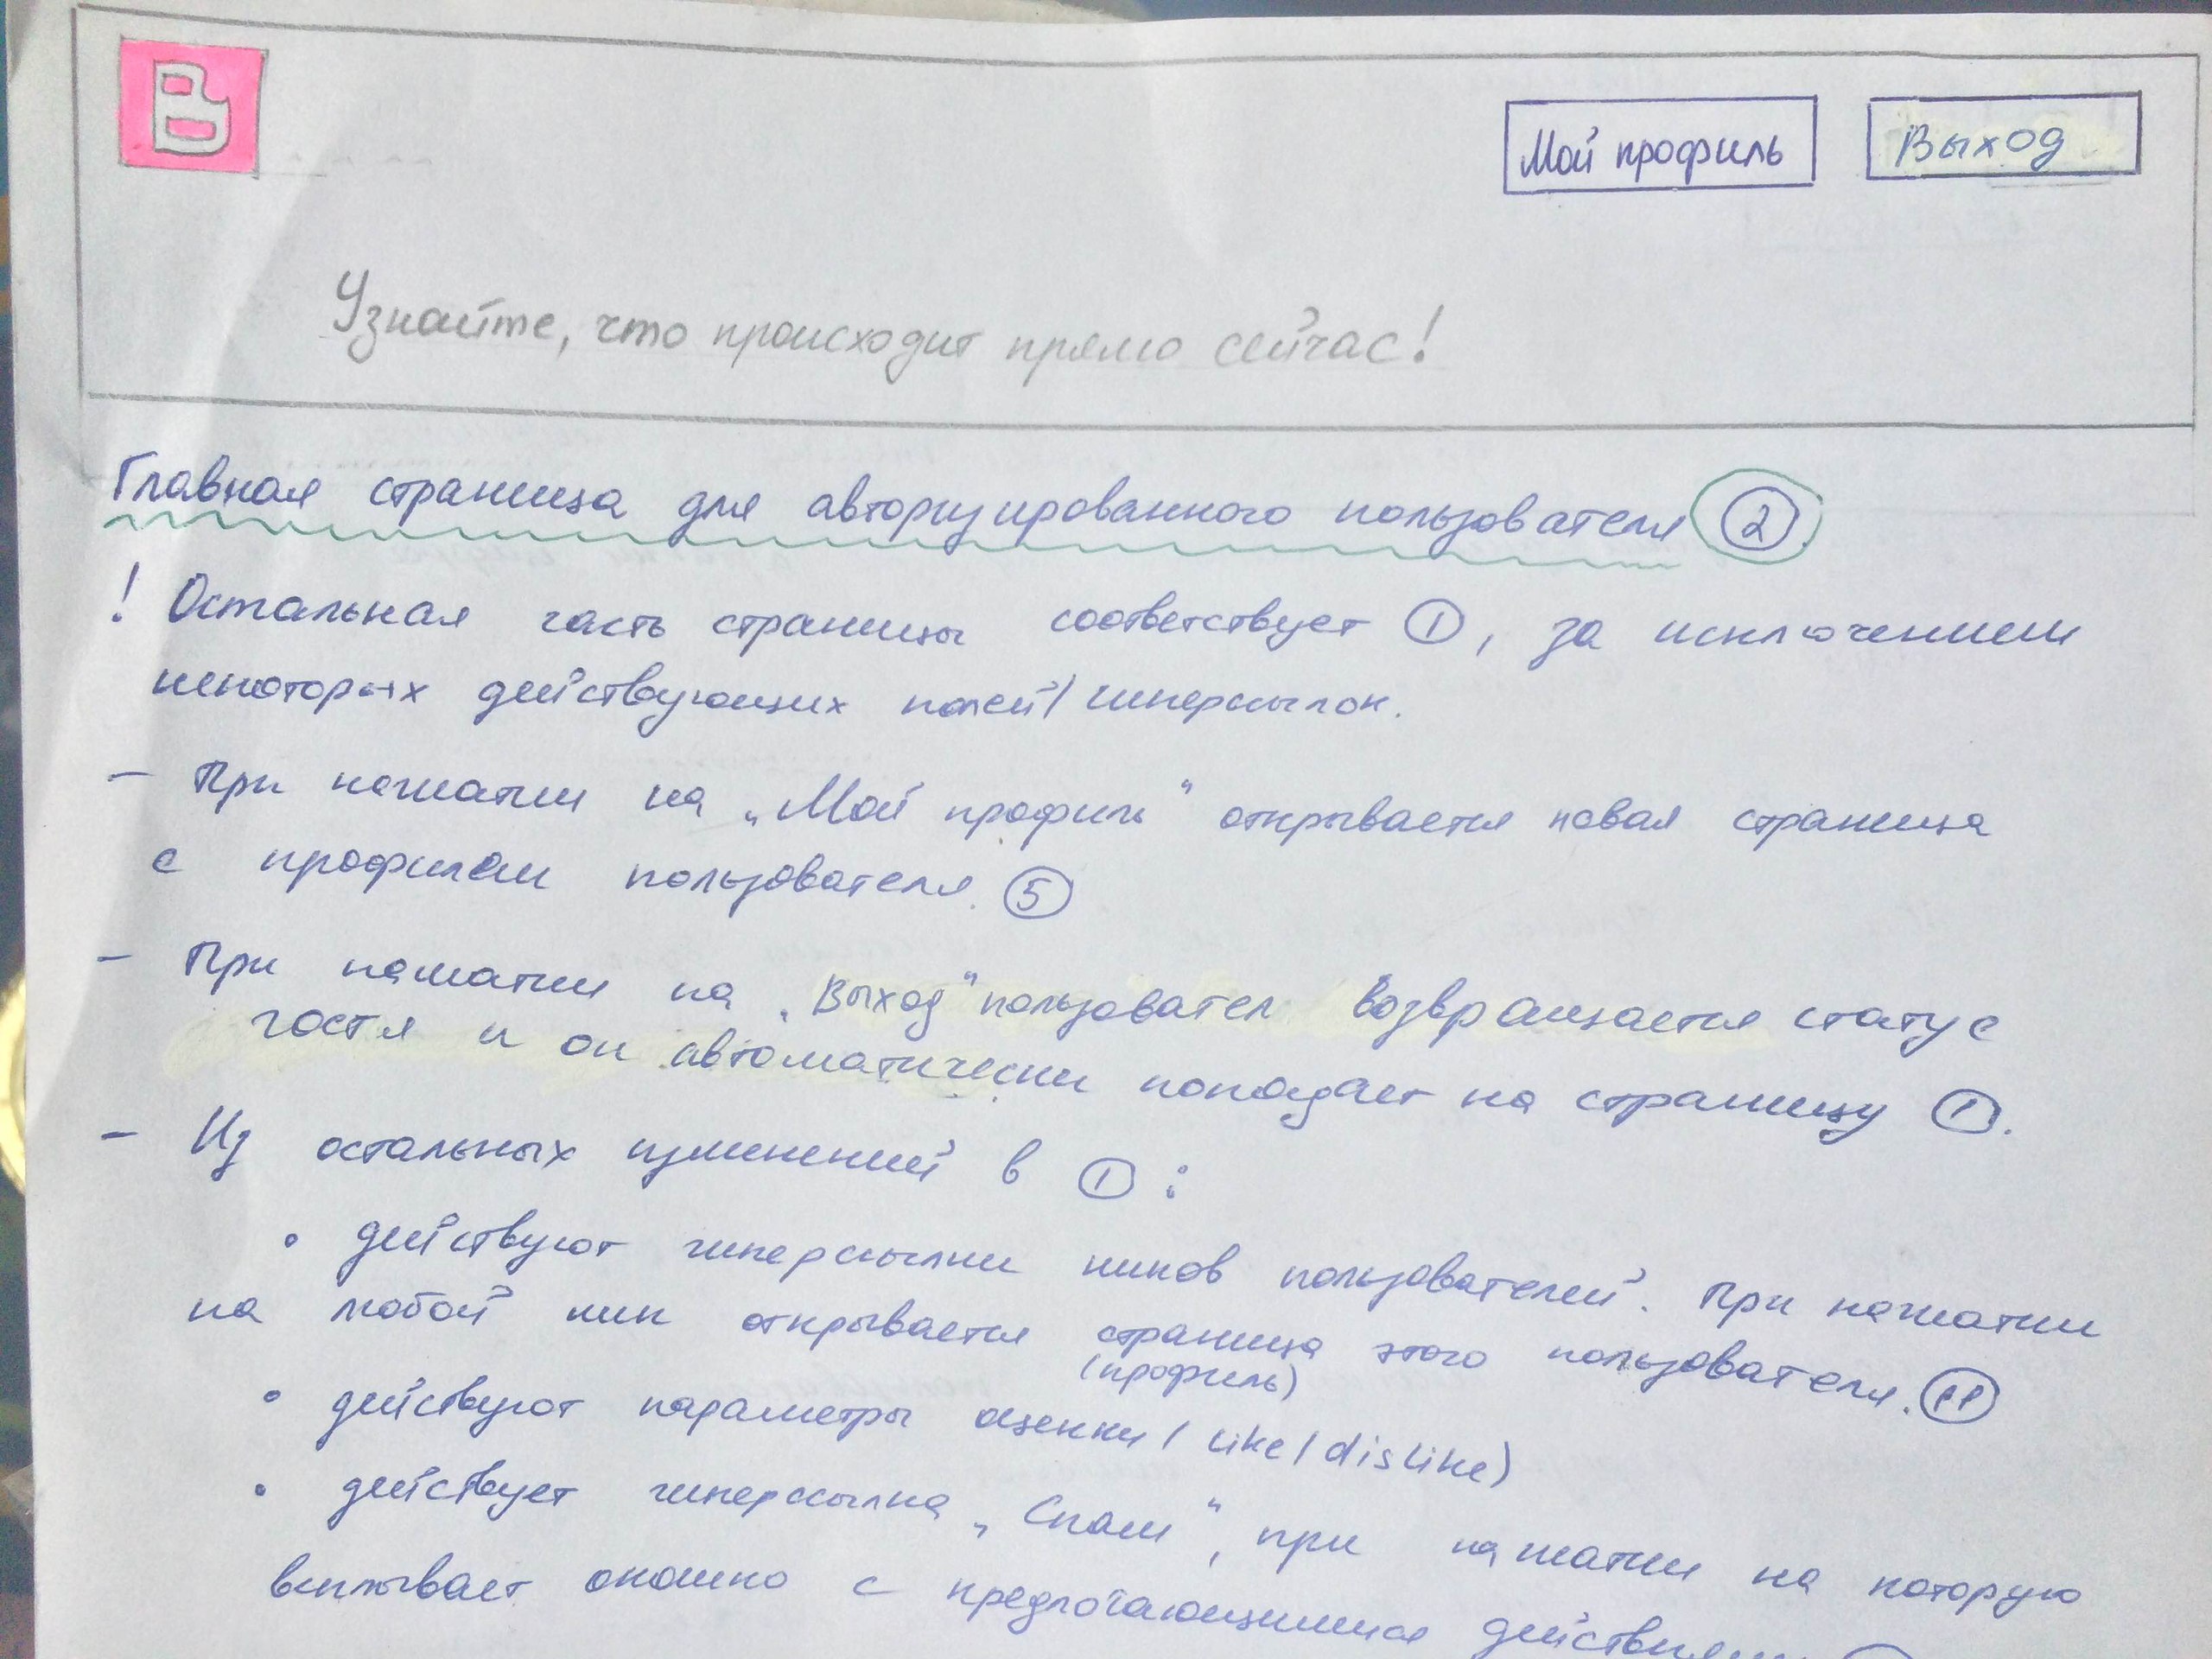 B
Мой профиль
Выход
Узнайте, что происходит прямо сейчас!
Главная страница для авторизированного пользователя ②
! Остальная часть страницы соответствует ①, за исключением
некоторых действующих полей/гиперссылок.
— При нажатии на „Мой профиль" открывается новая страница
с профилем пользователя. ⑤
— При нажатии на „Выход" пользовател возвращается статус
гостя и он автоматически попадает на страницу ①.
— Из остальных изменений в ① :
• действуют гиперссылки ников пользователей. При нажатии
на любой ник открывается страница этого пользователя. ⑪
(профиль)
• действуют параметры оценки (like/dislike)
• действует гиперссылка „Спам", при нажатии на которую
всплывает окошко с предлогающимися